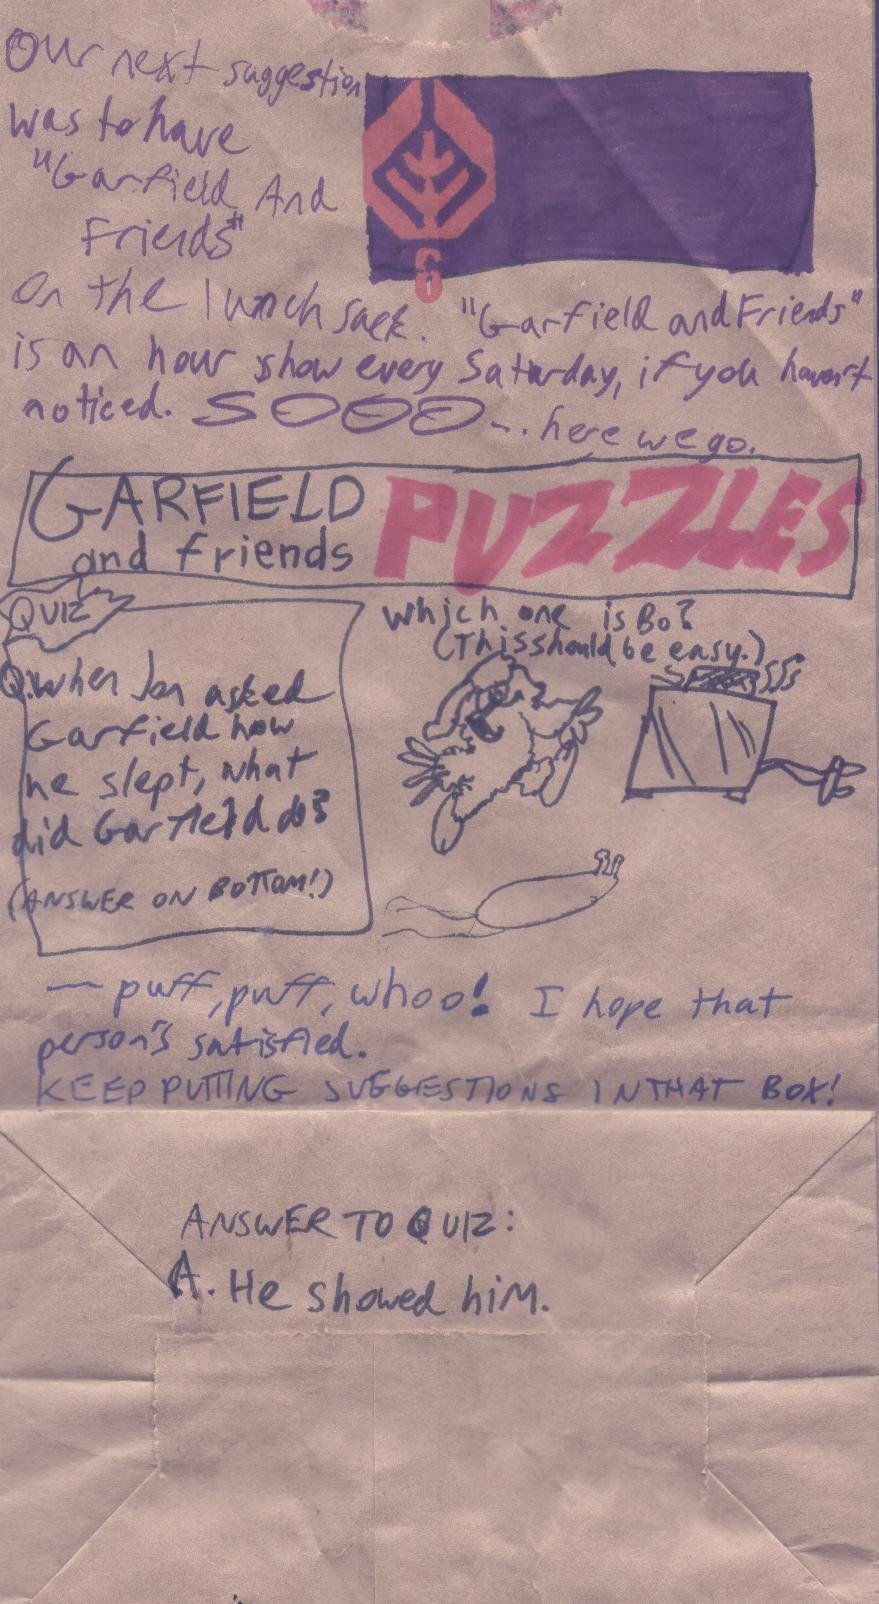 Our next suggestion
was to have
"Garfield And
Friends"
6
on the lunch sack. "Garfield and Friends"
is an hour show every Saturday, if you haven't
noticed. SOOO -... here we go.
GARFIELD
and friends
PUZZLES
QUIZ
Q. When Jon asked
Garfield how
he slept, what
did Garfield do?
(ANSWER ON BOTTOM!)
Which one is Bo?
(This should be easy.)
— puff, puff, whoo! I hope that
person's satisfied.
KEEP PUTTING SUGGESTIONS IN THAT BOX!
ANSWER TO QUIZ:
A. He showed him.